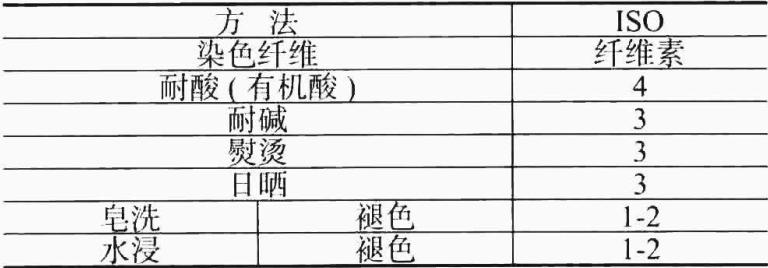 方 法 ISO
染色纤维 纤维素
耐酸(有机酸) 4
耐碱 3
熨烫 3
日晒 3
皂洗 褪色 1-2
水浸 褪色 1-2